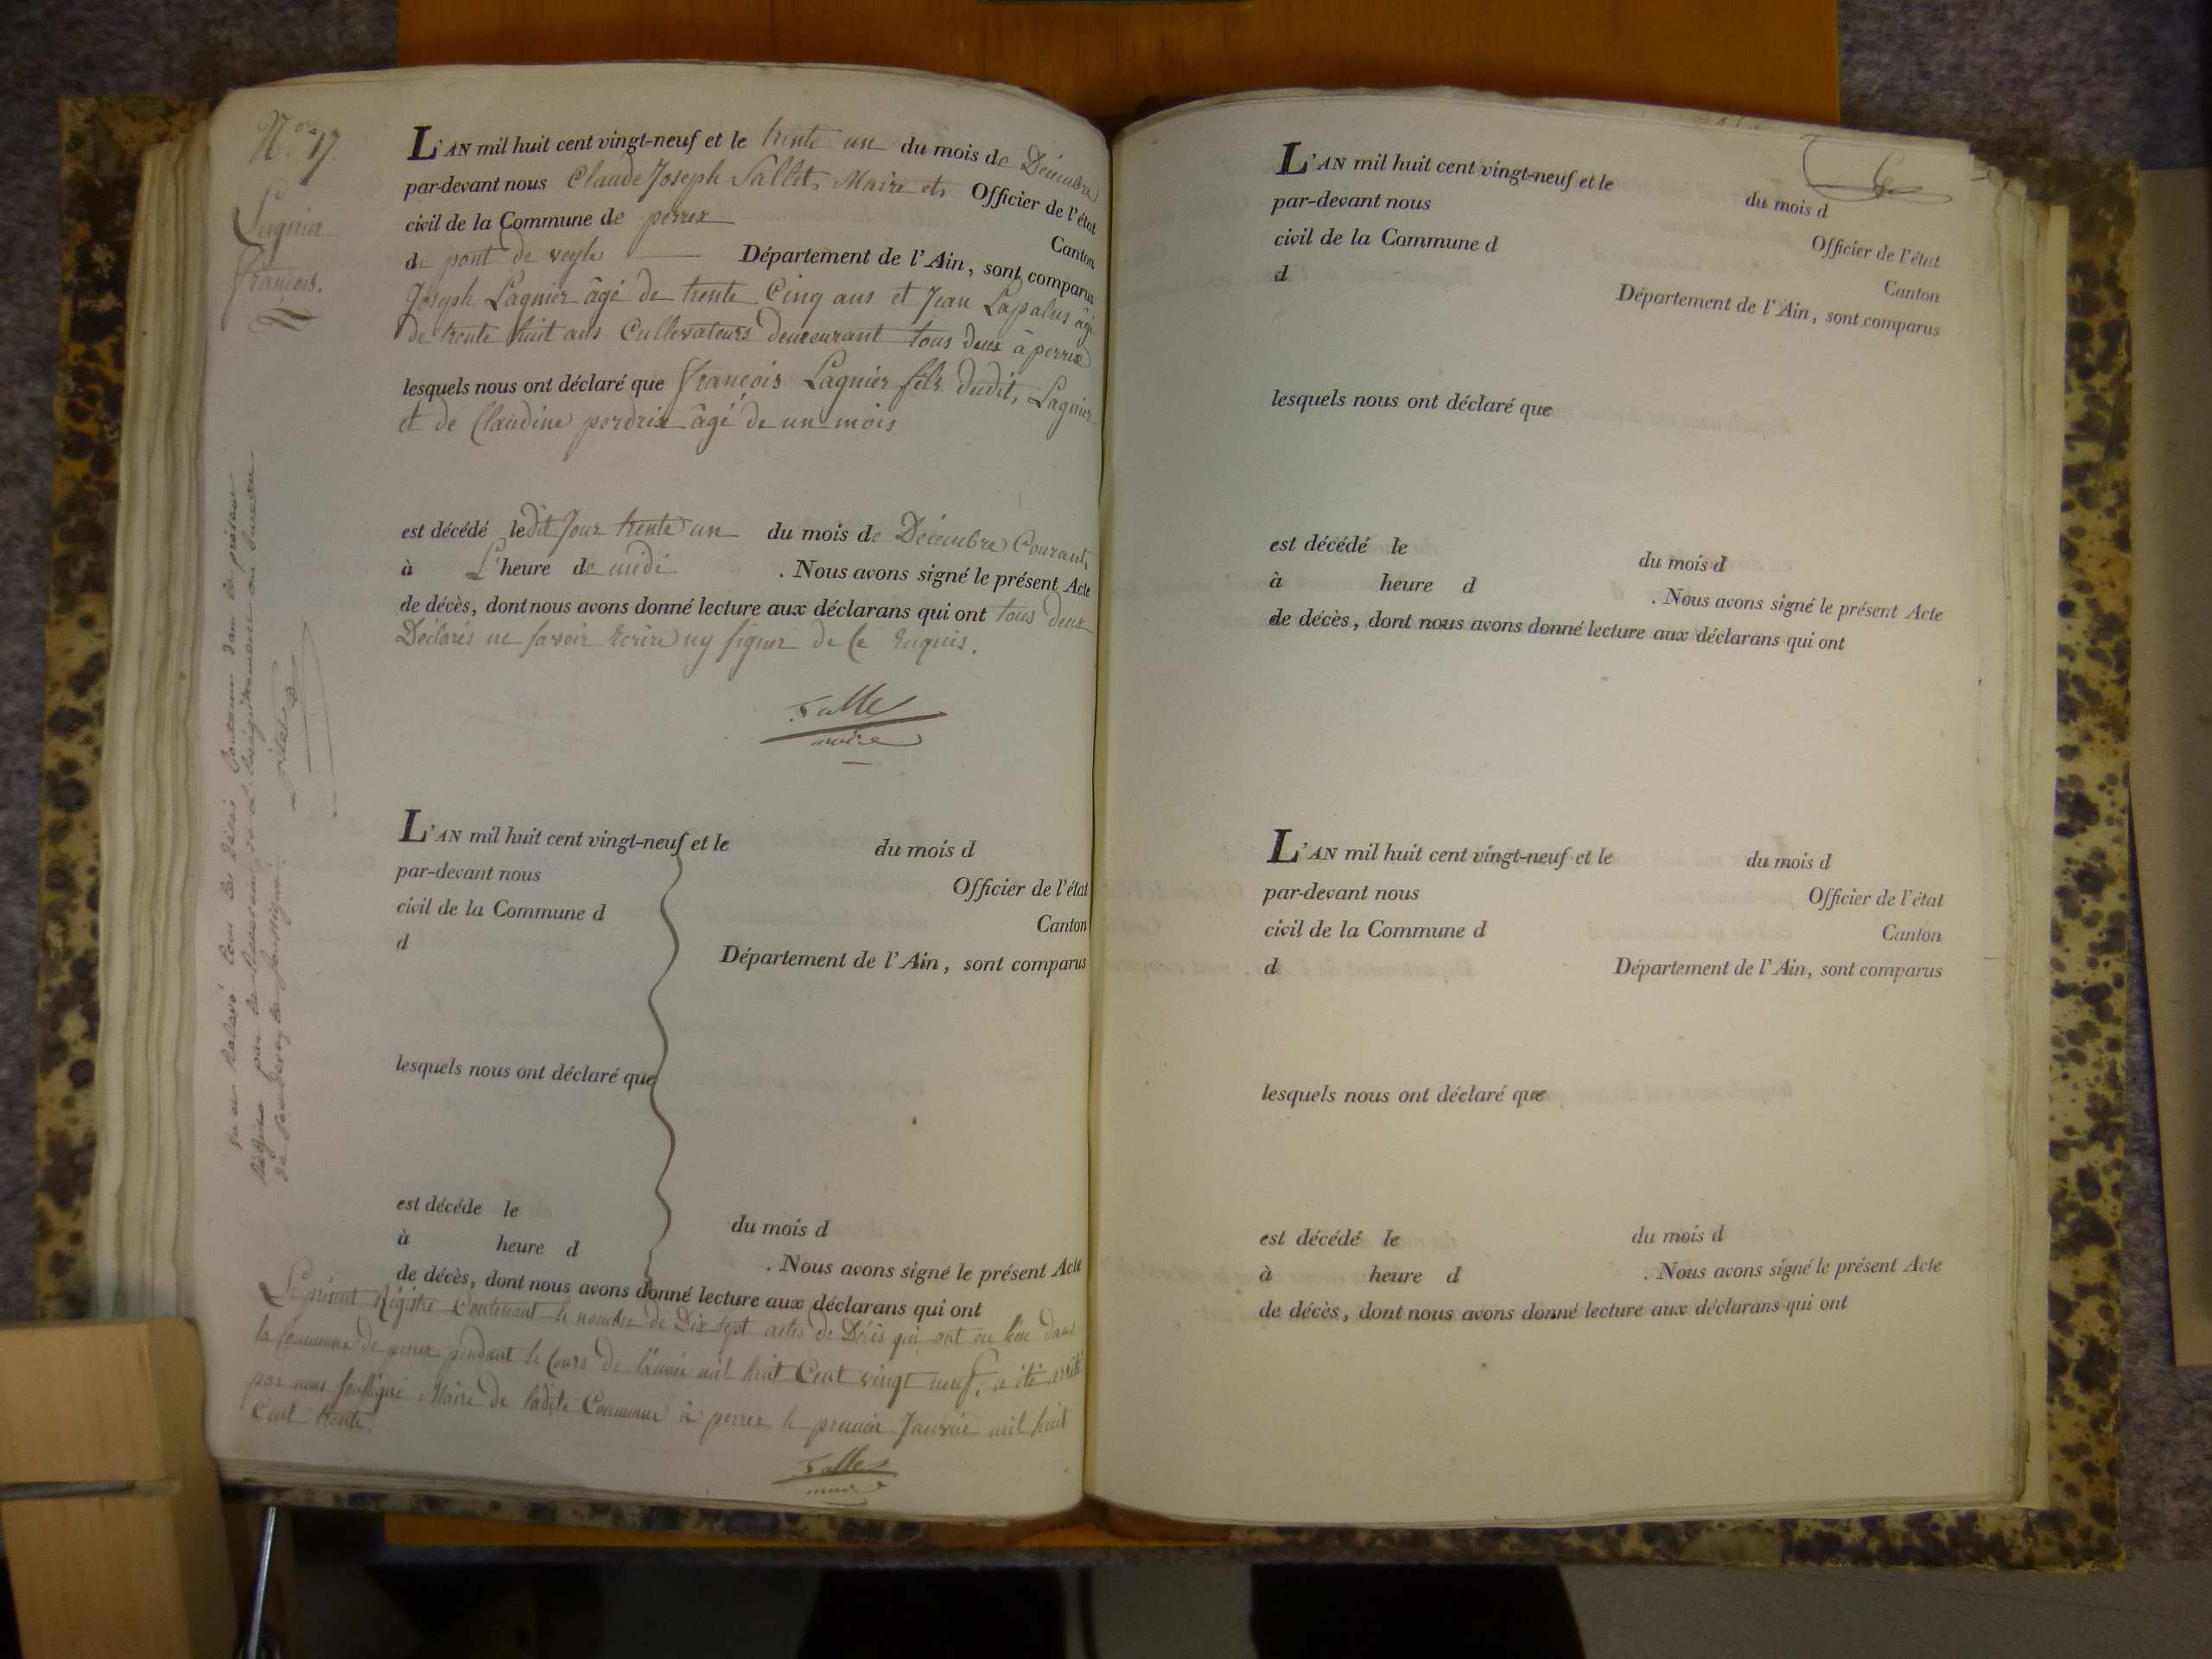 N.º 17.
Lagnier
François.
L'AN mil huit cent vingt-neuf et le trente un du mois de Décembre
par-devant nous Claude Joseph Sallet, Maire et, Officier de l'état
civil de la Commune de perrex Canton
de pont de veyle Département de l'Ain, sont comparus
Joseph Lagnier âgé de trente Cinq ans et Jean Lapalus âgé
de trente huit ans Cultivateurs demeurant tous deux à perrex
lesquels nous ont déclaré que François Lagnier fils dudit, Lagnier
et de Claudine perdrix âgé de un mois
est décédé ledit Jour trente un du mois de Décembre Courant,
à L'heure de midi . Nous avons signé le présent Acte
de décès, dont nous avons donné lecture aux déclarans qui ont tous deux
Déclarés ne savoir Ecrire ny signer de ce Enquis.
Salle
maire
L'AN mil huit cent vingt-neuf et le du mois d
par-devant nous Officier de l'état
civil de la Commune d Canton
d Département de l'Ain, sont comparus
lesquels nous ont déclaré que
est décéde le du mois d
à heure d . Nous avons signé le présent Acte
de décès, dont nous avons donné lecture aux déclarans qui ont
Le présent Régistre Contenant le nombre de Dix sept actes de Décès qui ont eu lieu dans
la Commune de perrex pendant le Cours de l'année mil huit Cent vingt neuf, a été arrêté
par nous soussigné Maire de ladite Commune à perrex le premier Janvier mil huit
Cent trente.
Salle
maire
L'AN mil huit cent vingt-neuf et le du mois d
par-devant nous Officier de l'état
civil de la Commune d Canton
d Département de l'Ain, sont comparus
lesquels nous ont déclaré que
est décédé le du mois d
à heure d . Nous avons signé le présent Acte
de décès, dont nous avons donné lecture aux déclarans qui ont
L'AN mil huit cent vingt-neuf et le du mois d
par-devant nous Officier de l'état
civil de la Commune d Canton
d Département de l'Ain, sont comparus
lesquels nous ont déclaré que
est décédé le du mois d
à heure d . Nous avons signé le présent Acte
de décès, dont nous avons donné lecture aux déclarans qui ont